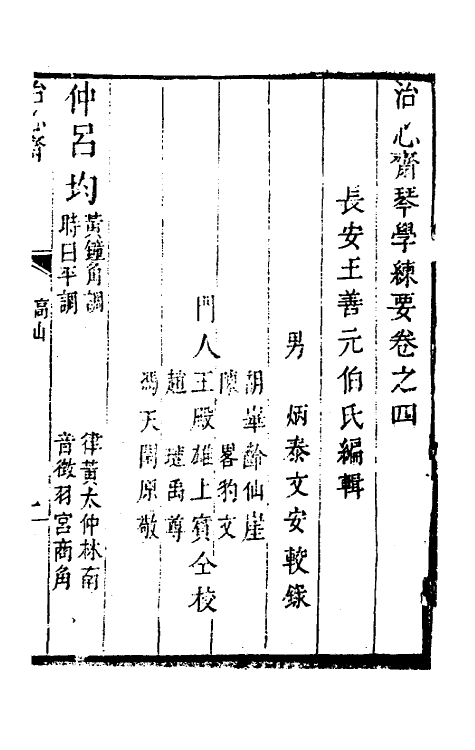 治心齋琴學練要卷之四
長安王善元伯氏編輯
男 炳泰文安較錄
胡華齡仙崖
陳畧豹文
門人王殿雄上賓仝校
趙璉禹尊
馮天閑原敬
仲呂均
黃鐘角調
時曰平調
律黃太仲林南
音徵羽宮商角
治心齋
高山